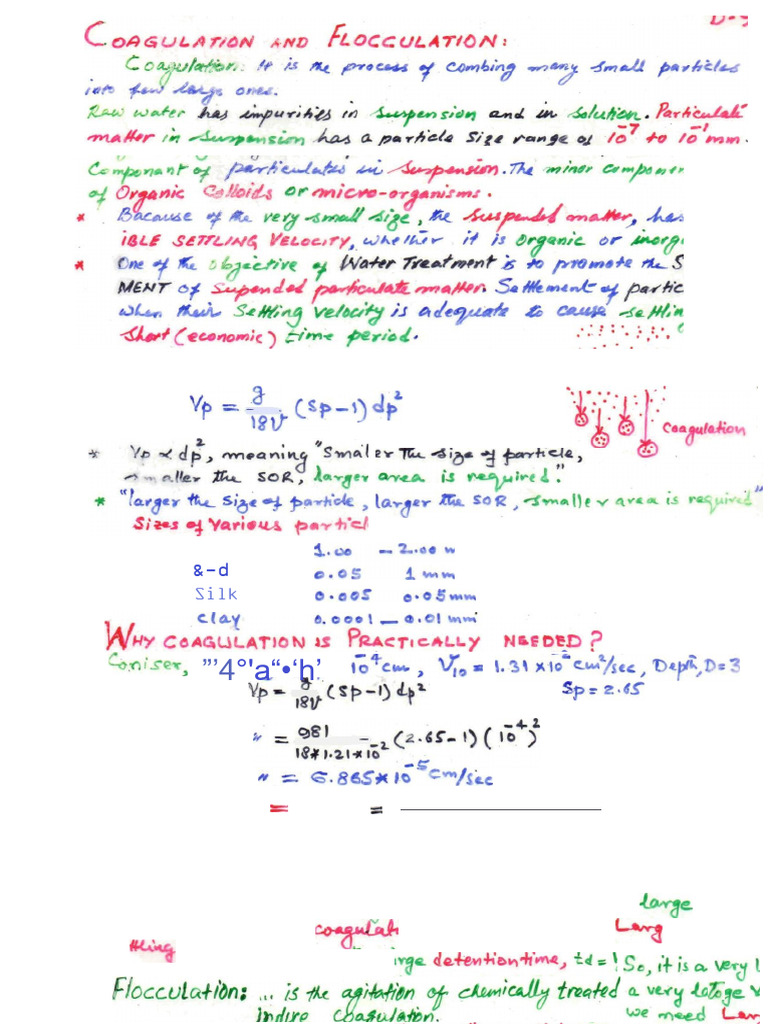 COAGULATION AND FLOCCULATION:
Coagulation: It is the process of combing many small particles
into few large ones.
Raw water has impurities in suspension and in solution. Particulate
matter in suspension has a particle size range of 10⁻⁷ to 10⁻¹ mm.
Componant of particulates in suspension. The minor componen
of Organic Colloids or micro-organisms.
* Bacause of the very small size, the suspended matter, has
IBLE SETTLING VELOCITY, whether it is organic or inorg
* One of the objective of Water Treatment is to promote the S
MENT of Supended particulate matter. Settlement of partic
when their Settling velocity is adequate to cause settlin
Short (economic) time period.
Vp = g/18ν (Sp-1) dp²
Coagulation
* Vp ∝ dp², meaning "Smaler The size of particle,
smaller the SOR, larger area is required."
* "larger the size of particle, larger the SOR, smaller area is required"
Sizes of Various particl
1.00 - 2.00 m
&-d 0.05 1 mm
Silk 0.005 0.05mm
clay 0.0001 - 0.01 mm
WHY COAGULATION IS PRACTICALLY NEEDED?
Coniser, 10⁻⁴cm, ν₁₀ = 1.31×10⁻² cm²/sec, Depth, D=3
Vp = g/18ν (Sp-1) dp² Sp = 2.65
" = 981/18*1.21*10⁻² (2.65-1) (10⁻⁴)²
" = 6.865*10⁻⁵ cm/sec
= =
large
coagulati Larg
ttling
arge detention time, td = ! So, it is a very l
Flocculation: ... is the agitation of chemically treated a very
coagulation. we need Lar